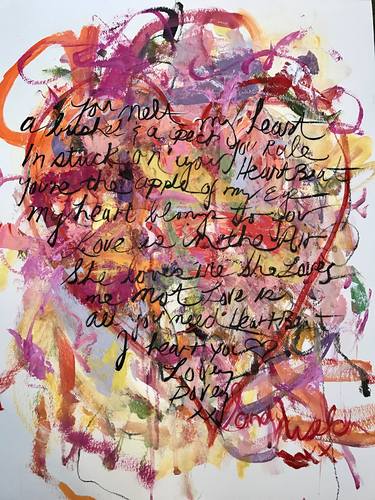 You melt my heart
a bushel & a peck You Rule
Im stuck on your Heart Beat
You're the apple of my Eye
my heart belongs to you
Love is in the Air
She loves me She Loves
me not Love is
all you need Heart Beat
I heart you
Lovey
Dovey
XX